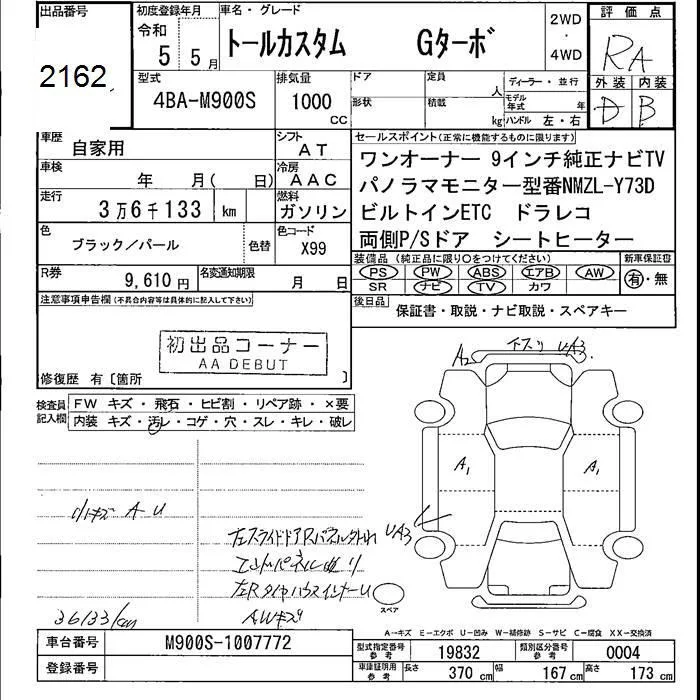 出品番号
2162
初度登録年月
令和
5 5月
車名・グレード
トールカスタム Gターボ
2WD
・
4WD
評価点
RA
外装 内装
D B
型式
4BA-M900S
排気量
1000
CC
ドア
形状
定員
人
積載
kg
ディーラー・並行
モデル年式 年
ハンドル 左・右
車歴
自家用
シフト
AT
車検
年 月( 日)
冷房
AAC
走行
3万6千133 km
燃料
ガソリン
色
ブラック/パール
色替
色コード
X99
R券
9,610円
名変通知期限
月 日
セールスポイント(正常に機能するものに限ります)
ワンオーナー 9インチ純正ナビTV
パノラマモニター型番NMZL-Y73D
ビルトインETC ドラレコ
両側P/Sドア シートヒーター
装備品(純正品に限り○をつけてください)
PS PW ABS エアB AW
SR ナビ TV カワ
新車保証書
有・無
後日品
保証書・取説・ナビ取説・スペアキー
注意事項申告欄(不具合内容等は具体的に記入して下さい)
初出品コーナー
AA DEBUT
修復歴 有〔箇所 〕
検査員記入欄
FW キズ・飛石・ヒビ割・リペア跡・×要
内装 キズ・汚レ・コゲ・穴・スレ・キレ・破レ
小キズ A U
左スライドドアRパネル外れ UA3
エンドパネル曲り
左RタイヤハウスインナーU
AWキズ
36133km
A2 下スリ UA3
A1
A1
スペア
A-キズ E-エクボ U-凹み W-補修跡 S-サビ C-腐食 XX-交換済
車台番号
M900S-1007772
登録番号
型式指定番号
参考
19832
類別区分番号
参考
0004
車庫証明用
参考
長さ 370 cm 幅 167 cm 高さ 173 cm